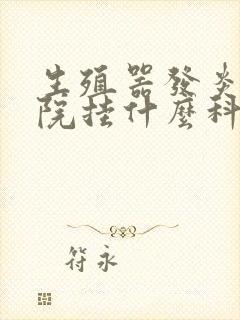 生殖器發炎
院挂什麽科
符永